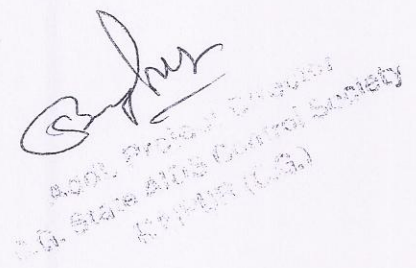 Addl. Project Director
C.G. State AIDS Control Society
RAIPUR (C.G.)